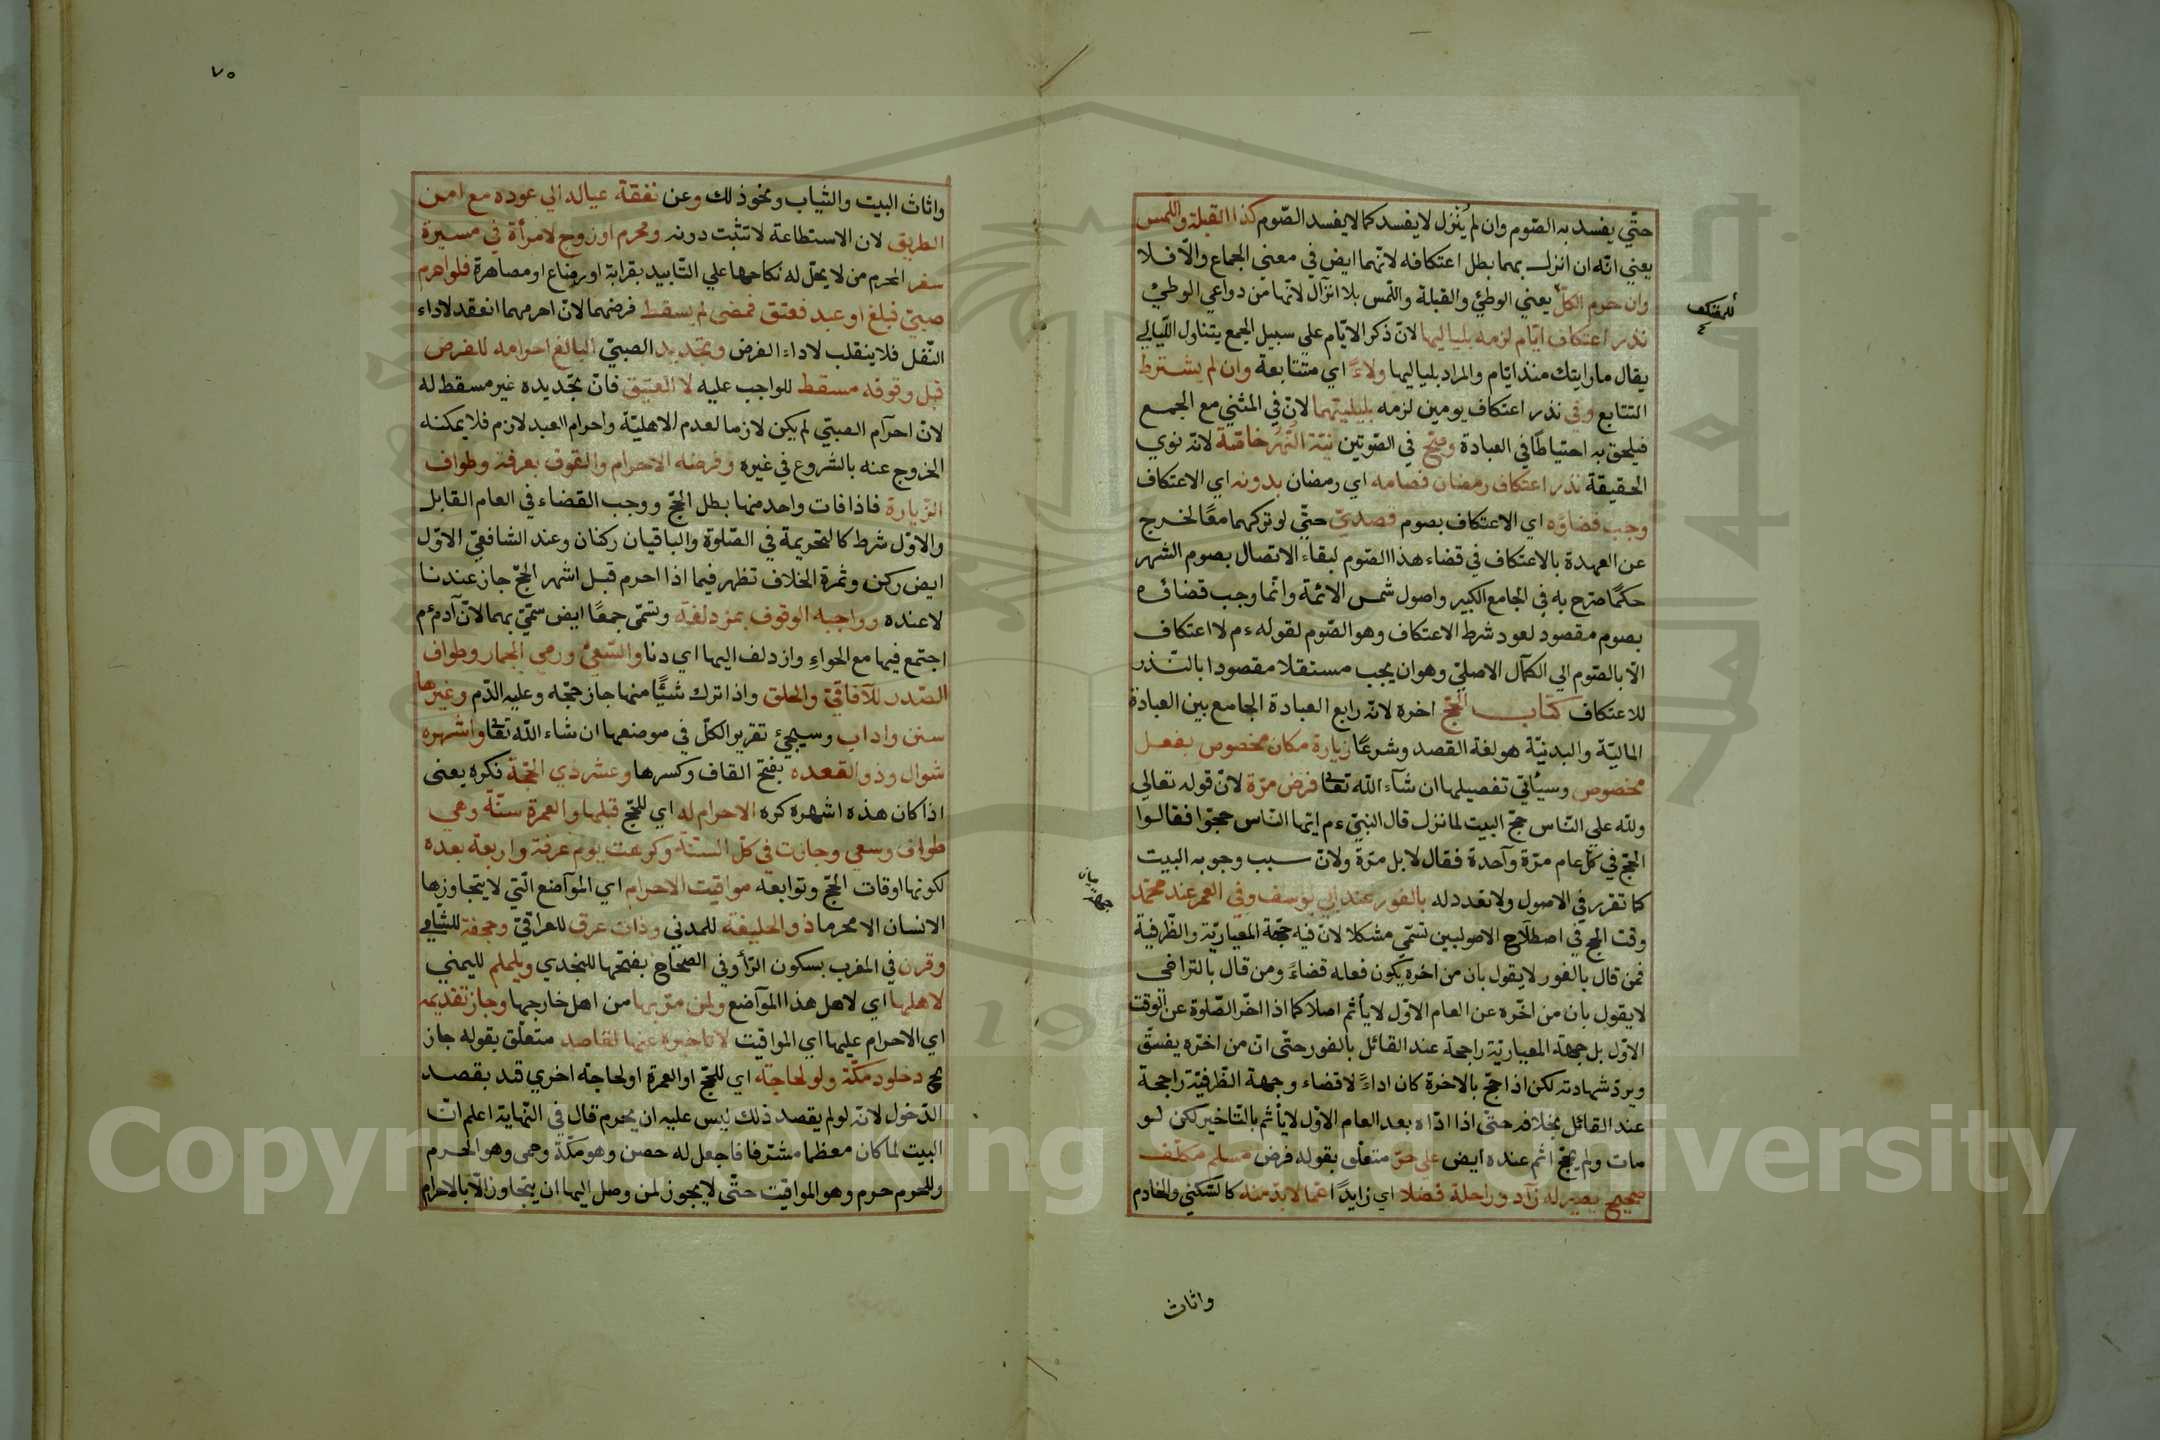 حتّي يفسد به الصّوم وان لم يُنزل لا يفسد كما لا يفسد الصّوم كذا القبلة واللمس
يعني انّه ان انزل بهما بطل اعتكافه لانّهما ايض في معني الجماع والّا فلا
وان حرم الكلّ يعني الوطئ والقبلة واللّمس بلا انزال لانّها من دواعي الوطئ
للمعتكف
نذر اعتكاف ايّام لزمه بلياليها لانّ ذكر الايّام علي سبيل الجمع يتناول اللّيالي
يقال ما رايتك منذ ايّام والمراد بلياليها ولاءً اي متتابعة وان لم يشترط
التتابع وفي نذر اعتكاف يومين لزمه بليلتيهما لانّ في المثني مع الجمع
فيلحق به احتياطًا في العبادة وصحّ في الصّوتين نيّة النُهُر خاصّة لانّه نوي
الحقيقة نذر اعتكاف رمضان فصامه اي رمضان بدونه اي الاعتكاف
وجب قضاؤه اي الاعتكاف بصوم قصديّ حتّي لو تركهما معًا لخرج
عن العهدة بالاعتكاف في قضاء هذا الصّوم لبقاء الاتصال بصوم الشهر
حكمًا صرّح به في الجامع الكبير واصول شمس الائمّة وانّما وجب قضاؤه
بصوم مقصود لعود شرط الاعتكاف وهو الصّوم لقوله ءم لا اعتكاف
الّا بالصّوم الي الكمال الاصليّ وهو ان يجب مستقلا مقصودا بالنّذر
للاعتكاف كتاب الحجّ اخره لانّه رابع العبادة الجامع بين العبادة
الماليّة والبدنيّة هو لغة القصد وشرعًا زيارة مكان مخصوص بفعل
مخصوص وسيأتي تفصيلها ان شآء اللّه تعا فرض مرّة لانّ قوله تعالي
وللّه علي النّاس حجّ البيت لما نزل قال النبيّ ءم ايّها النّاس حجّوا فقالوا
الحجّ في كلّ عام مرّة وآحدة فقال لا بل مرّة ولانّ سبب وجوبه البيت
كما تقرر في الاصول ولا تعدد له بالفور عند ابي يوسف وفي العمر عند محمّد
بيان جهة
وقت الحج في اصطلاح الاصوليين تسمّي مشكلا لانّ فيه جهة المعياريّة والظّرفية
فمن قال بالفور لا يقول بان من اخره يكون فعله قضاءً ومن قال بالتراخي
لا يقول بان من اخّره عن العام الاوّل لا يأثم اصلا كما اذا اخّر الصّلوة عن الوقت
الاوّل بل جهة المعياريّة راجحة عند القائل بالفور حتّي انّ من اخّره يفسّق
ويردّ شهادته لكن اذا حجّ بالاخرة كان اداءً لا قضاء وجهة الظّرفيّة راجحة
عند القائل بخلافه حتّي اذا ادّاه بعد العام الاوّل لا يأثم بالتّاخير لكن لو
مات ولم يحجّ اثم عنده ايض علي حرّ متعلّق بقوله فرض مسلم مكلّف
صحيح بصير له زآد وراحلة فضلا اي زايدًا عمّا لا بدّ منه كالسّكني والخادم
واثاث
٧٥
واثاث البيت والثياب ونحوذلك وعن نفقة عياله الي عوده مع امن
الطريق لان الاستطاعة لا تثبت دونه ومحرم او زوج لامرأة في مسيرة
سفر المحرم من لا يحلّ له نكاحها علي التّابيد بقرابة او رضاع او مصاهرة فلو احرم
صبيّ فبلغ او عبد فعتق فمضي لم يسقط فرضهما لانّ احرامهما انعقد لاداء
النّفل فلا ينقلب لاداء الفرض وتجديد الصبيّ البالغ احرامه للفرض
قبل وقوفه مسقط للواجب عليه لا العتيق فانّ تجديده غير مسقط له
لانّ احرآم الصبيّ لم يكن لازما لعدم الاهليّة واحرام العبد لازم فلا يمكنه
الخروج عنه بالشروع في غيره وفرضه الاحرام والوقوف بعرفة وطواف
الزّيارة فاذا فات واحد منها بطل الحجّ ووجب القضاء في العام القابل
والاوّل شرط كالتحريمة في الصّلوة والباقيان ركنان وعند الشافعيّ الاوّل
ايض ركن وثمرة الخلاف تظهر فيما اذا احرم قبل اشهر الحجّ جاز عندنا
لا عنده وواجبه الوقوف بمزدلفة وتسمّي جمعًا ايض سمّيّ بهما لانّ آدم ءم
اجتمع فيها مع الحواءِ وازدلف اليها اي دنا والسّعيُ ورمي الجمار وطواف
الصّدر للآفاقيّ والحلق واذا ترك شيئًا منها جاز حجّه وعليه الدّم وغيرها
سنن واداب وسيجئ تقرير الكلّ في موضعها ان شاء اللّه تعا واشهره
شوال وذو القعده بفتح القاف وكسرها وعشر ذي الحجّة نكره يعني
اذا كان هذه اشهره كره الاحرام له اي للحجّ قبلها والعمرة سنّة وهي
طواف وسعي وجازت في كلّ السنّة وكرهت يوم عرفة واربعة بعده
لكونها اوقات الحجّ وتوابعه مواقيت الاحرام اي الموآضع الّتي لا يتجاوزها
الانسان الا محرما ذو الحليفة للمدني وذات عرق للعراقيّ وجحفة للشّامي
وقرن في المغرب بسكون الرّأ وفي الصحاح بفتحها للنجدي ويلملم لليمني
لاهلها اي لاهل هذا الموآضع ولمن مرّ بها من اهل خارجها وجاز تقديمه
اي الاحرام عليها اي المواقيت لا تاخيره عنها لقاصد متعلّق بقوله جاز
بج دخلود مكّة ولو لحاجة اي للحجّ او العمرة او لحاجة اخري قيد بقصد
الدّخول لانّه لو لم يقصد ذلك ليس عليه ان يحرم قال في النّهاية اعلم انّ
البيت لما كان معظما مشرّفا فاجعل له حصن وهو مكّة وحمي وهو الحرم
وللحرم حرم وهو المواقيت حتّي لا يجوز لمن وصل اليها ان يتجاوز الّا بالاحرام
Copyright © King Saud University